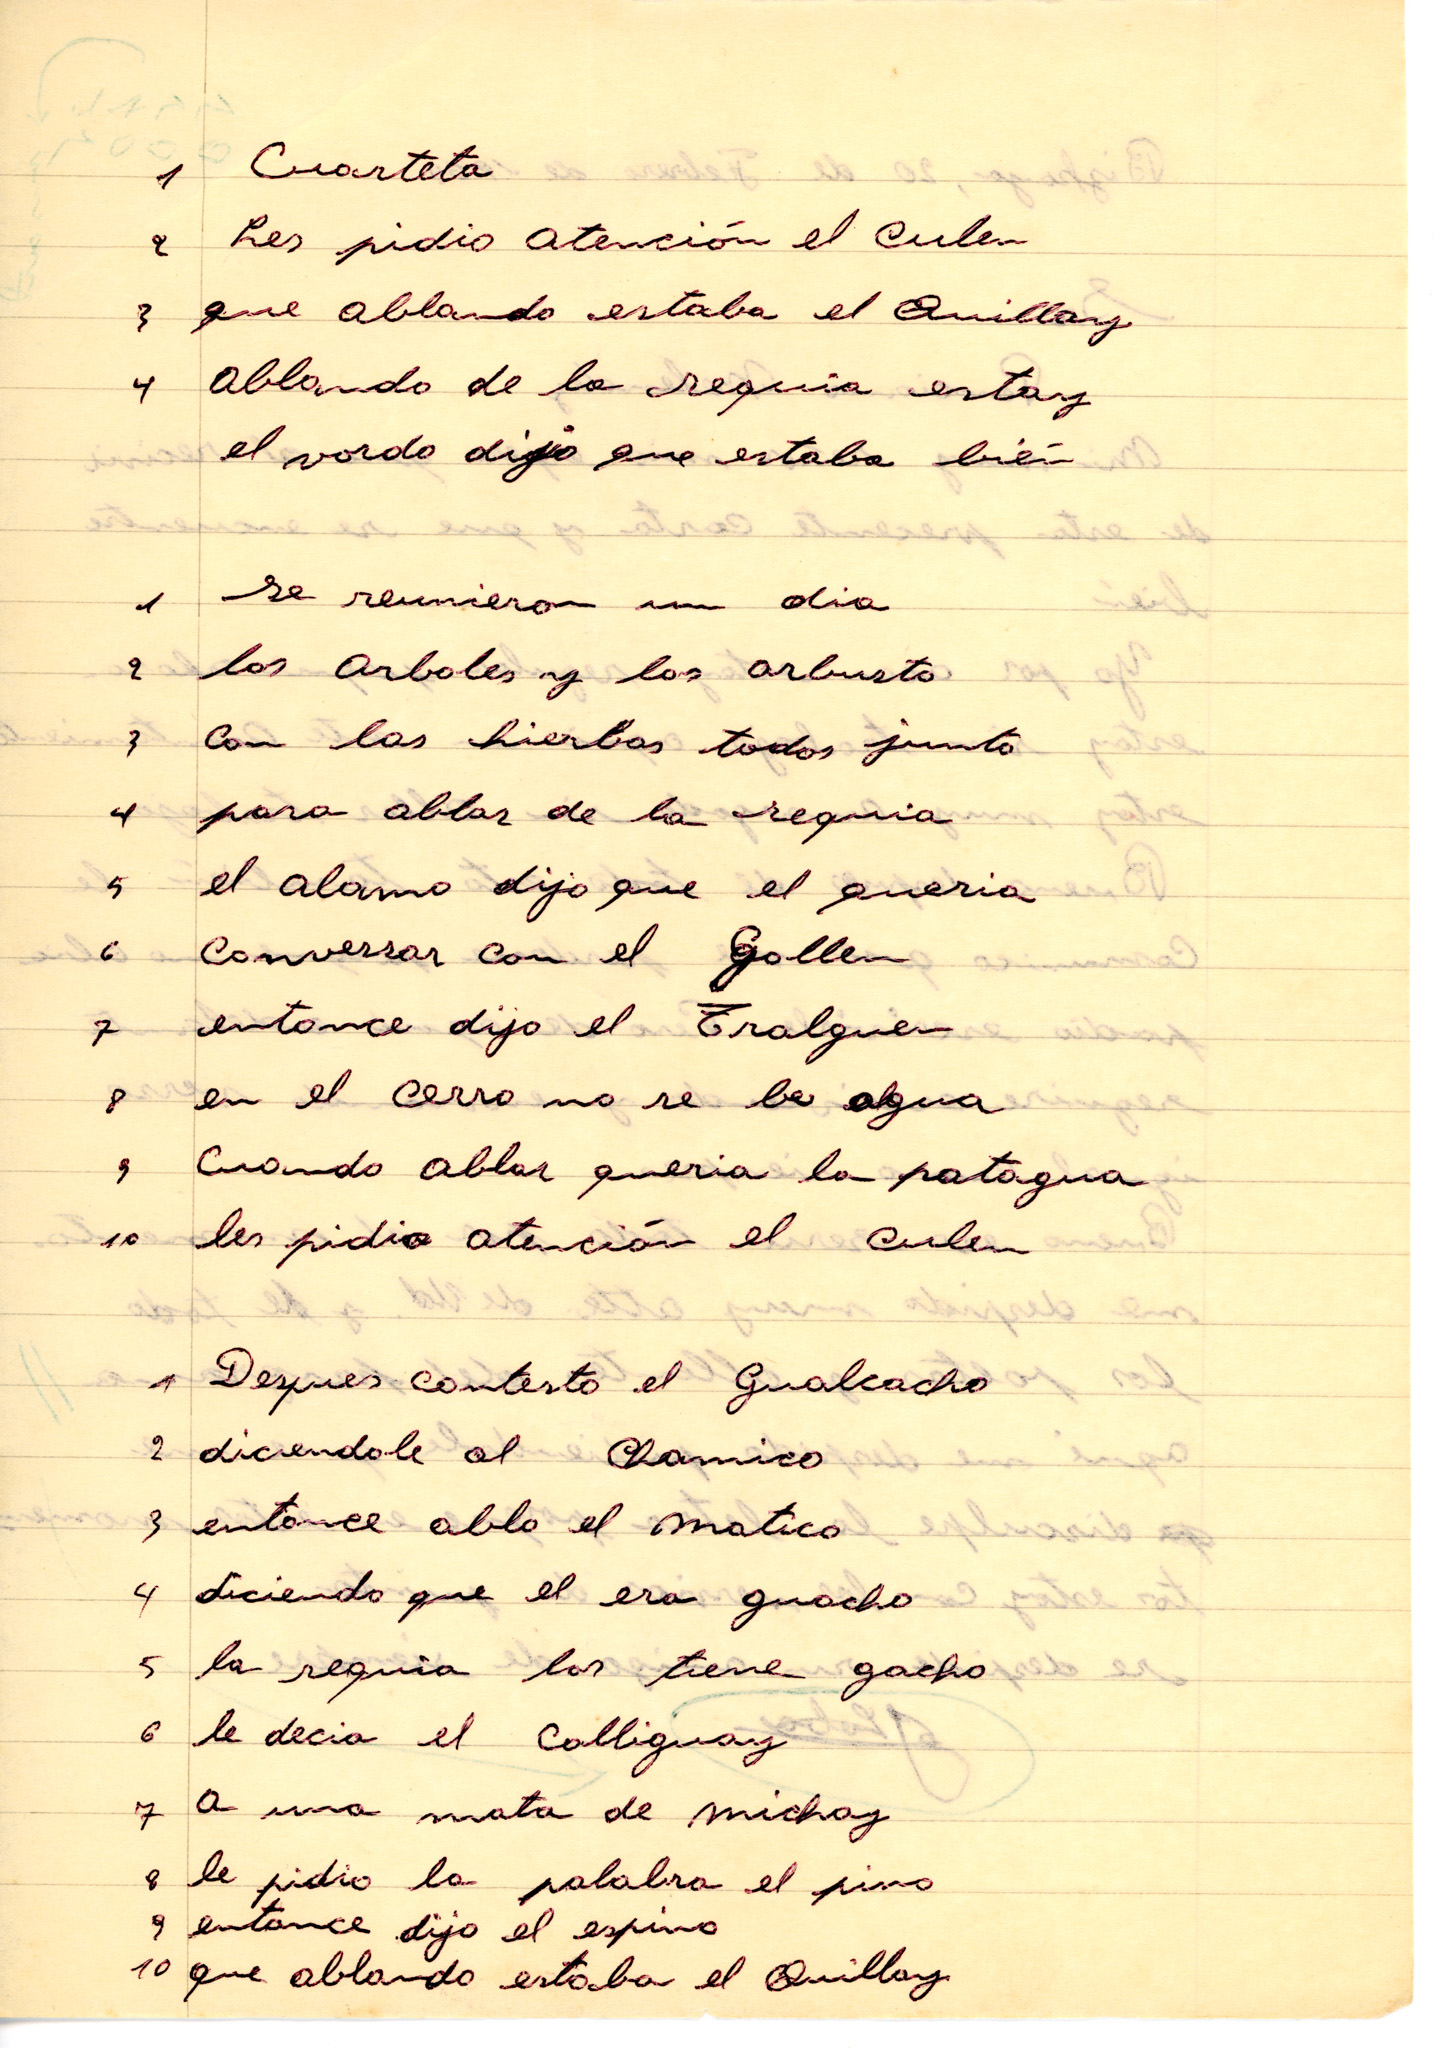 1 Cuarteta
2 Les pidio atención el Culen
3 que ablando estaba el Quillay
4 ablando de la sequia estay
el vordo dijo que estaba bién
1 Se reunieron un dia
2 los arboles y los arbusto
3 con las hierbas todos junto
4 para ablar de la sequia
5 el alamo dijo que el queria
6 conversar con el Gollen
7 entonce dijo el Tralguen
8 en el cerro no se be agua
9 Cuando ablar queria la patagua
10 les pidio atención el culen
1 Despues contesto el Gualcacho
2 diciendole al Chamico
3 entonce ablo el Matico
4 diciendo que el era guacho
5 la sequia los tiene gacho
6 le decia el Colliguay
7 a una mata de Michay
8 le pidio la palabra el pino
9 entonce dijo el espino
10 que ablando estaba el Quillay